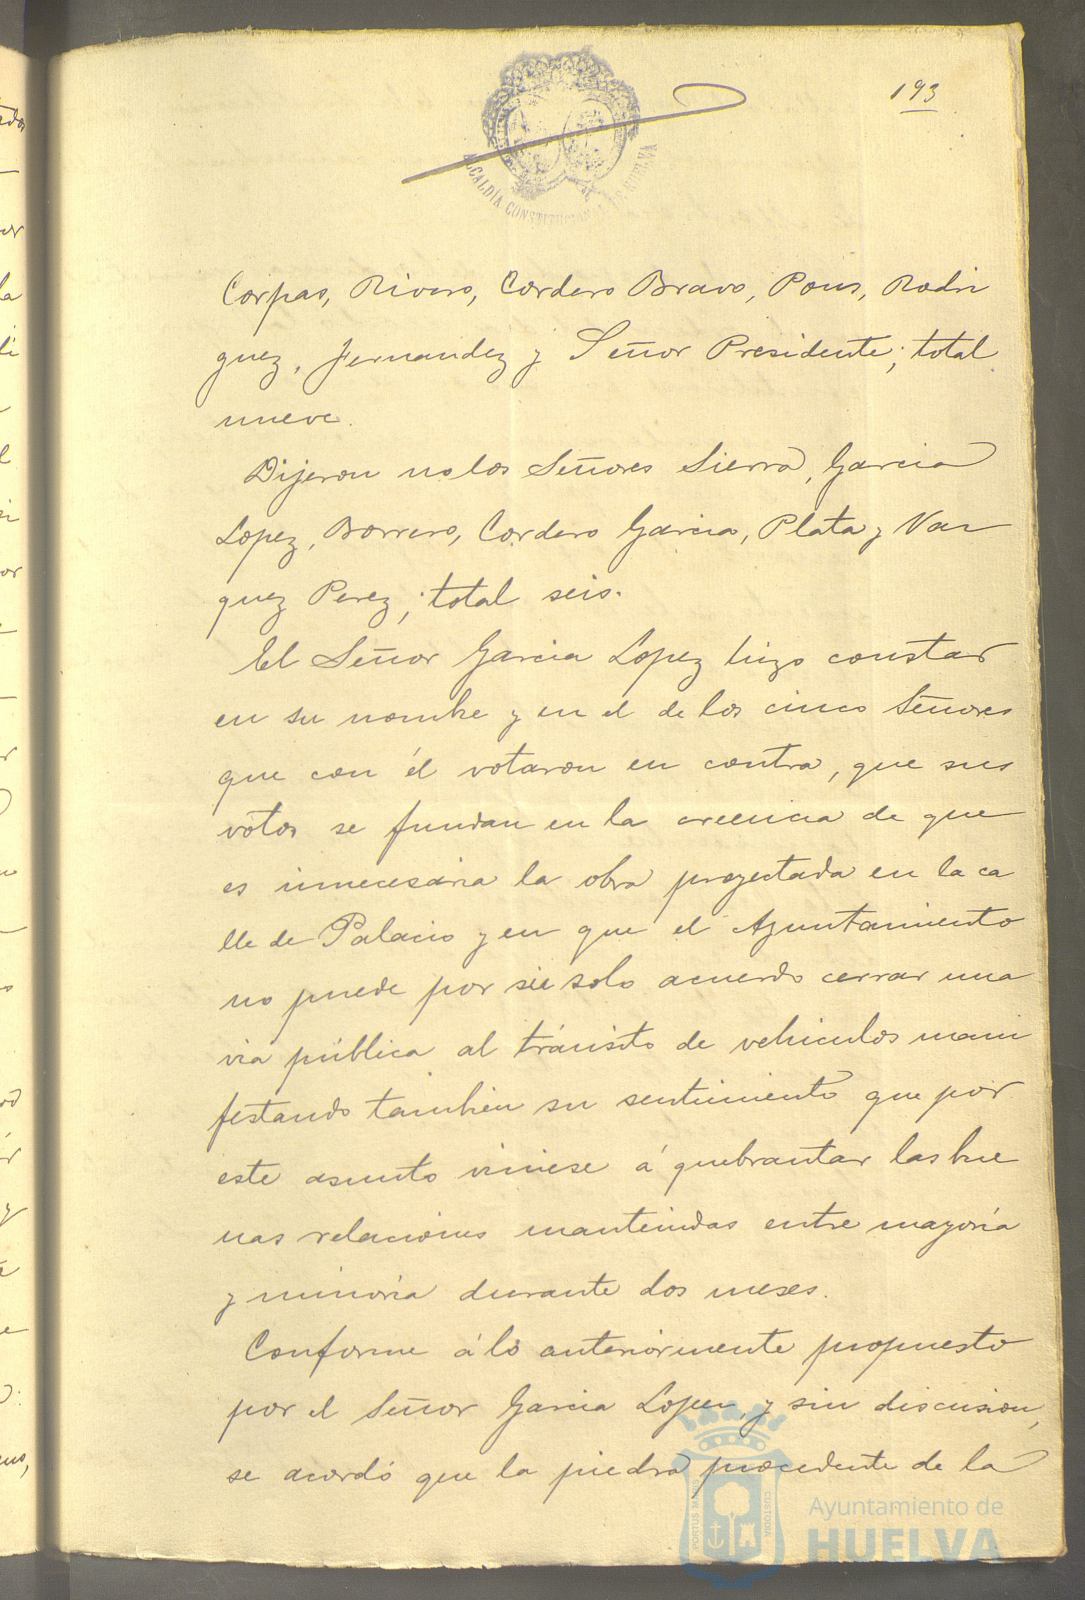 193
ALCALDÍA CONSTITUCIONAL DE HUELVA
Corpas, Rivero, Cordero Bravo, Pons, Rodri
guez, Fernandez y Señor Presidente; total
nueve.
Dijeron no los Señores Sierra, Garcia
Lopez, Borrero, Cordero Garcia, Plata y Vaz
quez Perez; total seis.
El Señor Garcia Lopez hizo constar
en su nombre y en el de los cinco Señores
que con él votaron en contra, que sus
votos se fundan en la creencia de que
es innecesaria la obra proyectada en la ca
lle de Palacio y en que el Ayuntamiento
no puede por sí solo acuerdo cerrar una
via pública al tránsito de vehiculos mani
festando tambien su sentimiento que por
este asunto viniese á quebrantar las bue
nas relaciones mantenidas entre mayoría
y minoría durante dos meses.
Conforme á lo anteriormente propuesto
por el Señor Garcia Lopez, y sin discusion,
se acordó que la piedra procedente de la
PORTUS MARIS
CUSTODIA
Ayuntamiento de
HUELVA